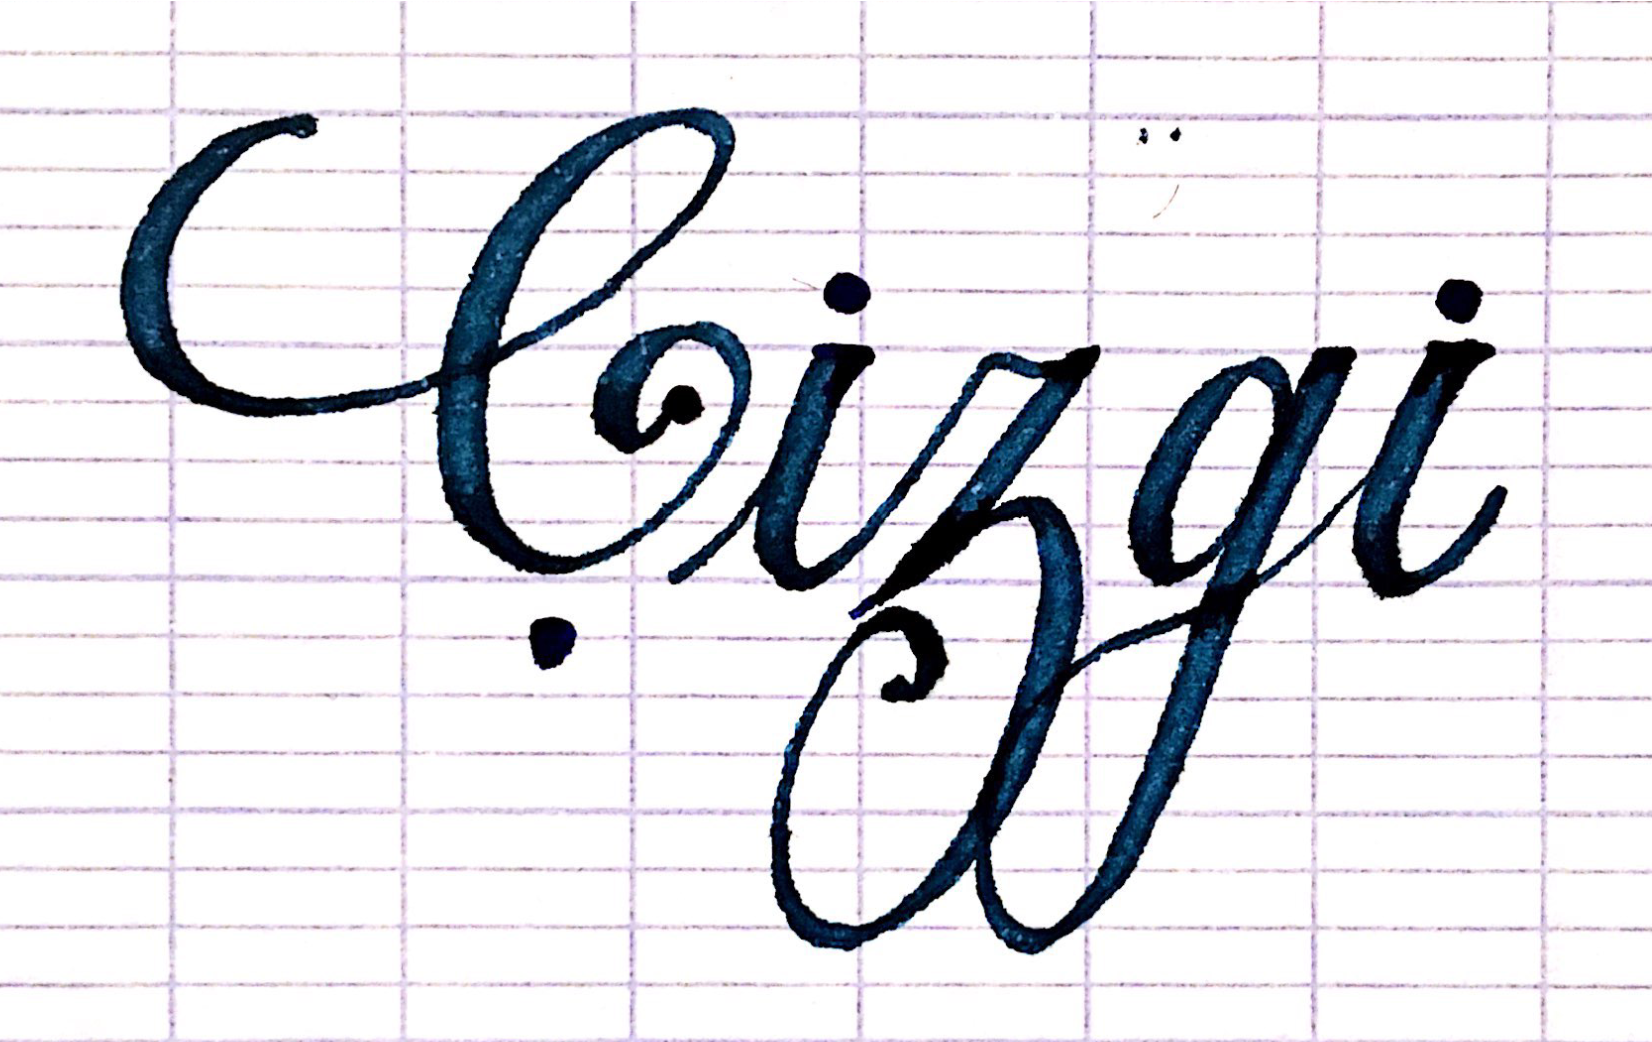 Çizgi